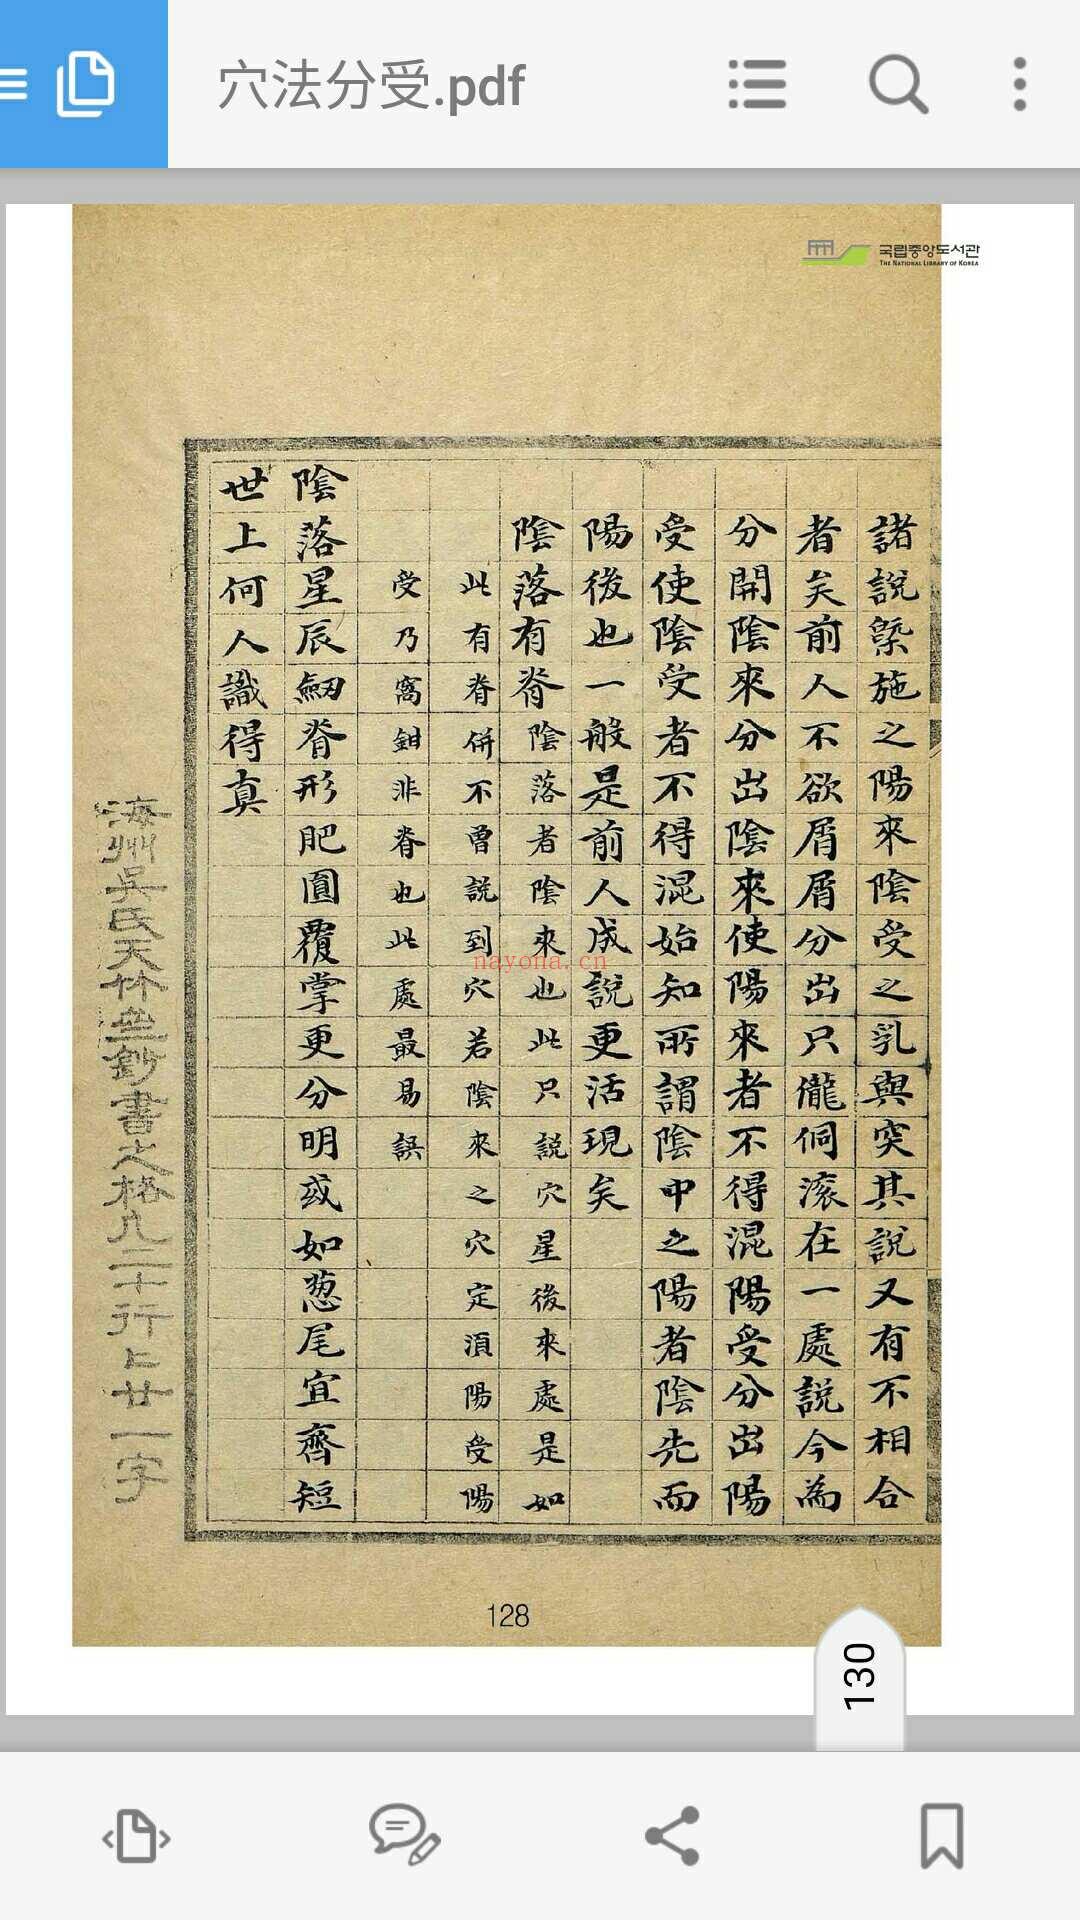 穴法分受.pdf
국립중앙도서관
THE NATIONAL LIBRARY OF KOREA
諸說槩施之陽來陰受之乳與突其說又有不相合
者矣前人不欲屑屑分出只儱侗滚在一處說今為
分開陰來分出陰來使陽來者不得混陽受分出陽
受使陰受者不得混始知所謂陰中之陽者陰先而
陽後也一般是前人成說更活現矣
陰落有脊陰落者陰來也此只說穴星後來處是如
此有脊併不曾説到穴若陰來之穴定須陽受陽
受乃窩鉗非脊也此處最易誤
陰落星辰劒脊形肥圓覆掌更分明或如葱尾宜齊短
世上何人識得真
海州吳氏天竹盦鈔書之格凡二十行上廿一字
nayona.cn
128
130